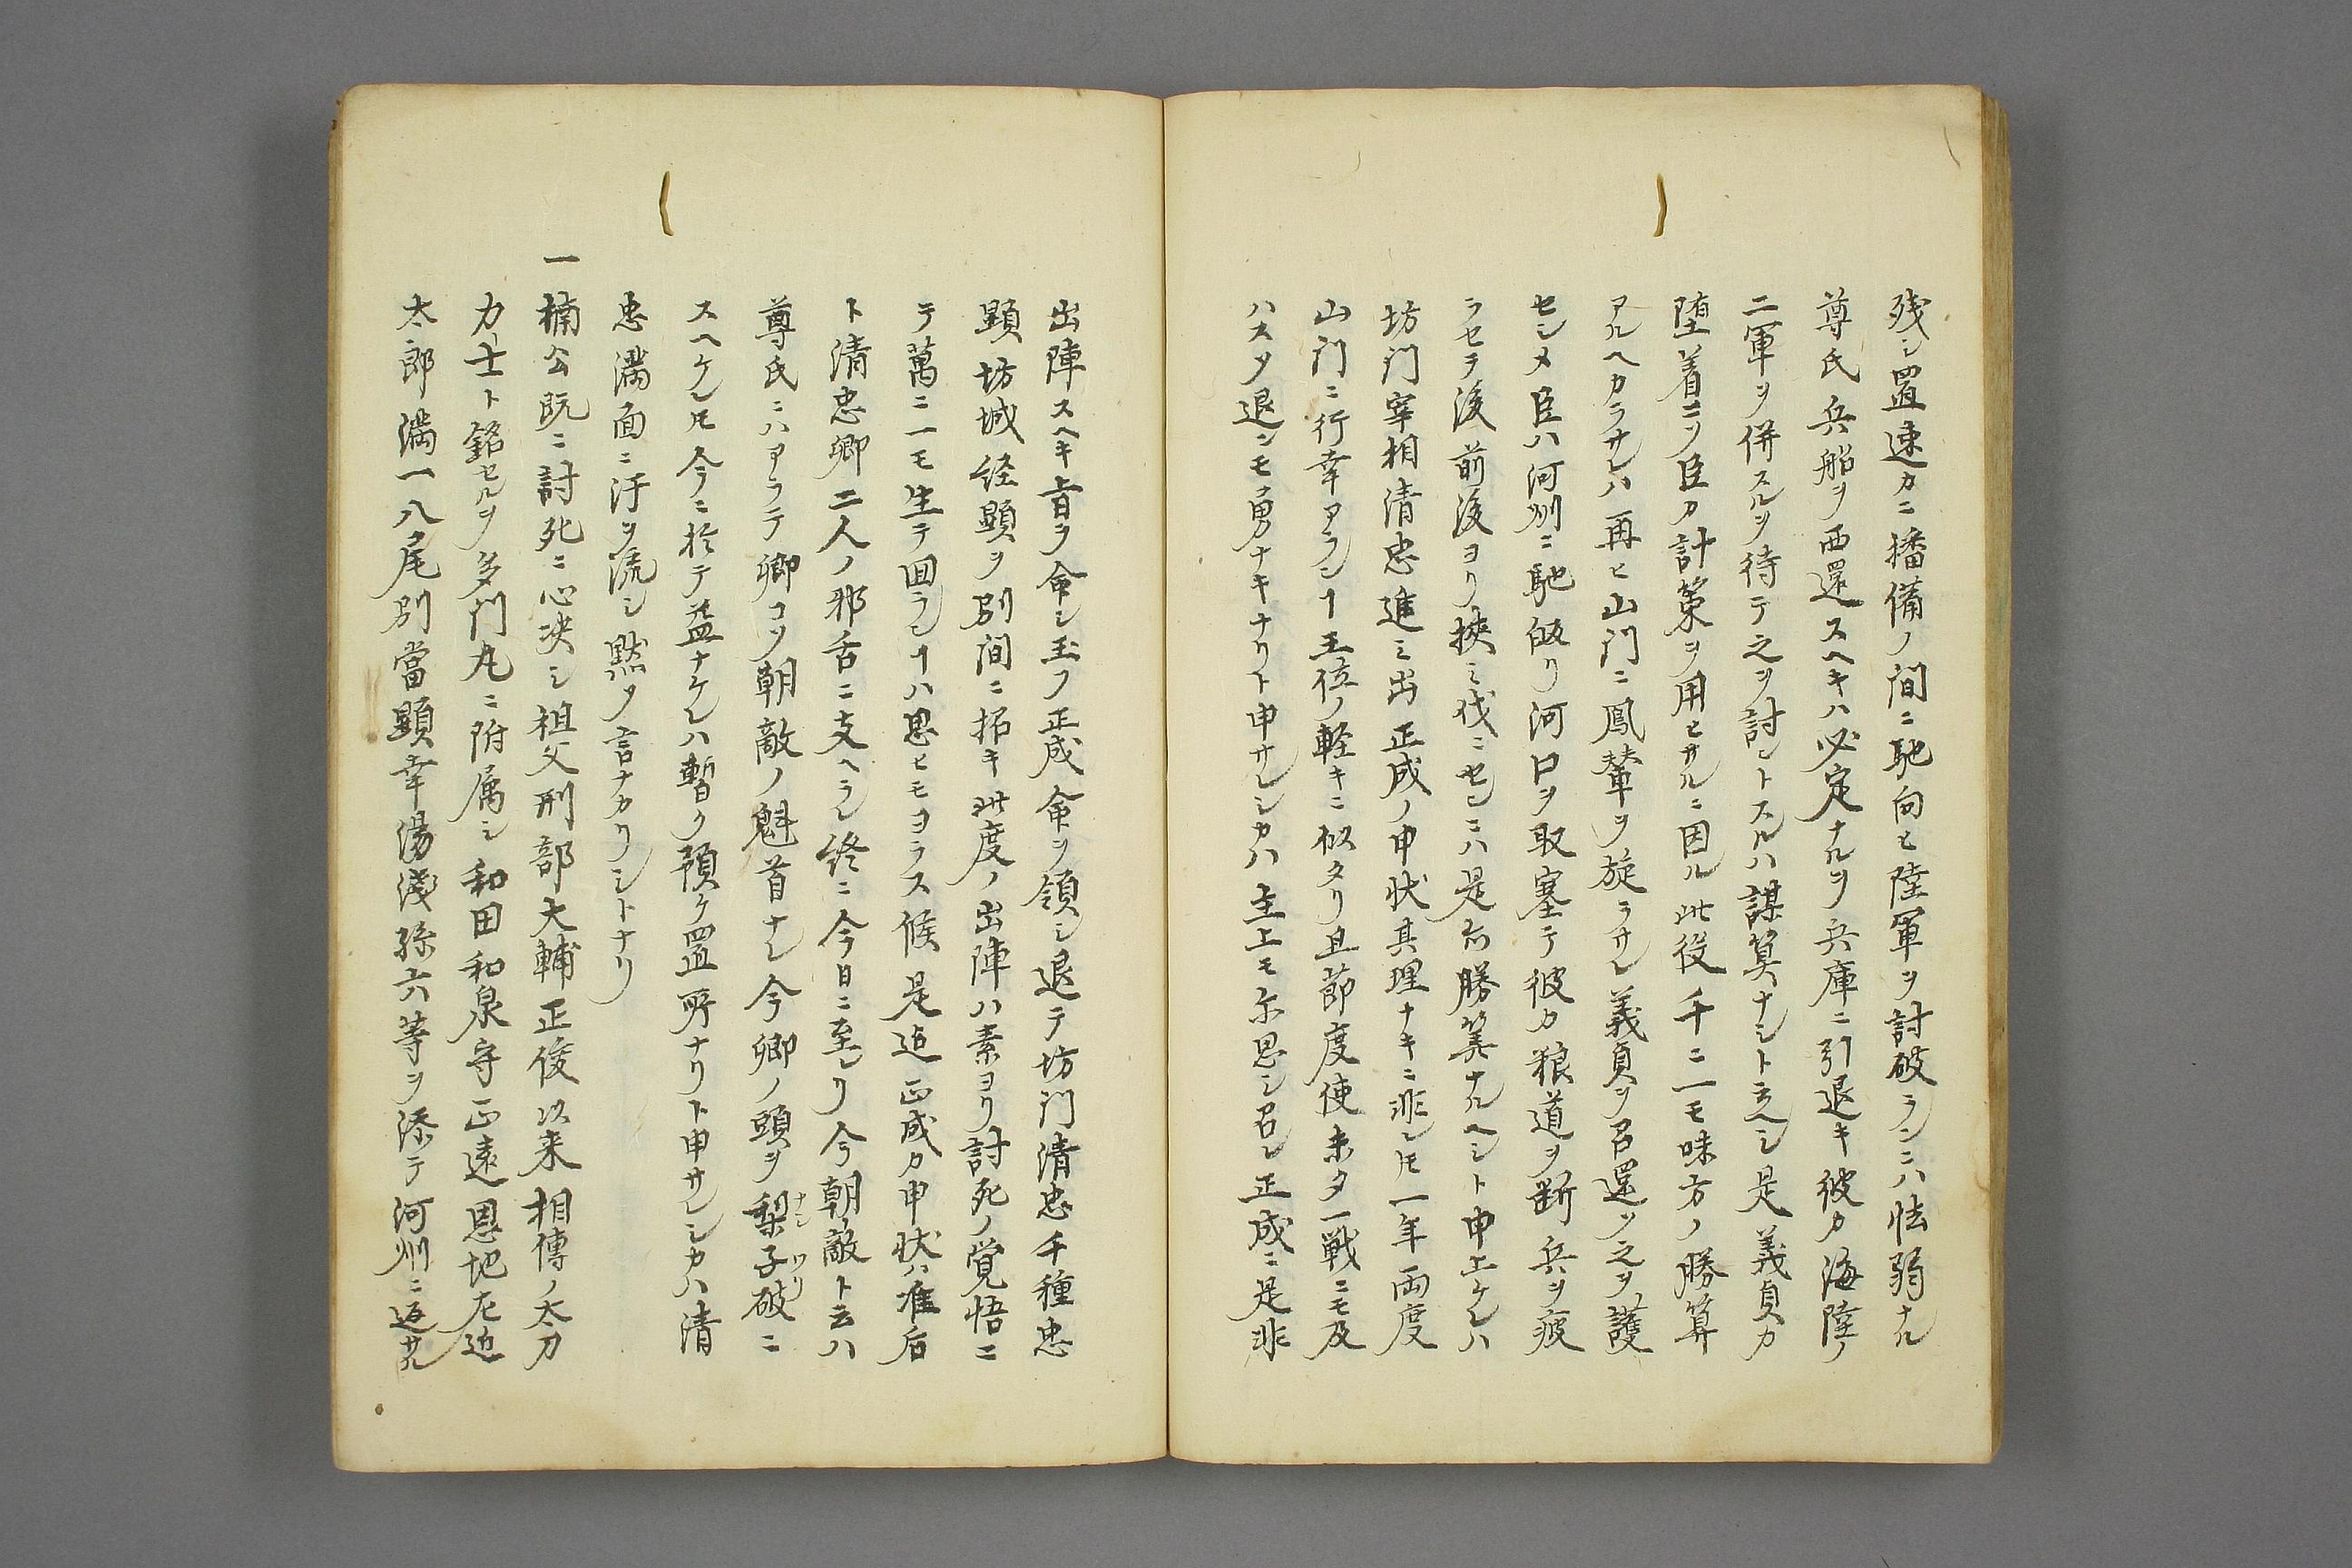 残シ置速カニ播備ノ間ニ馳向ヒ陸軍ヲ討破ランニハ怯弱ナル
尊氏兵船ヲ西還スヘキハ必定ナルヲ兵庫ニ引退キ彼カ海陸ノ
二軍ヲ併スルヲ待テ之ヲ討ントスルハ謀算ナシト云ヘシ是義貞カ
堕着ニノ臣カ計策ヲ用ヒサルニ因ル此役千ニ一モ味方ノ勝算
アルヘカラサレハ再ヒ山門ニ鳳輦ヲ旋ラサレ義貞ヲ召還ツ之ヲ護
セシメ臣ハ河州ニ馳皈リ河口ヲ取塞テ彼カ粮道ヲ断兵ヲ疲
ラセテ後前後ヨリ挾ミ伐ニセンニハ是必勝算ナルヘシト申上ケレハ
坊門宰相清忠進ミ出正成ノ申状其理ナキニ非レ𪜈一年両度
山門ニ行幸アランヿ王位ノ軽キニ似タリ且節度使未タ一戦ニモ及
ハスメ退ンモ勇ナキナリト申サレシカハ主上モ尓思シ召レ正成ニ是非
出陣スヘキ旨ヲ命シ玉フ正成命ヲ領シ退テ坊門清忠千種忠
顕坊城経顕ヲ別間ニ招キ此度ノ出陣ハ素ヨリ討死ノ覚悟ニ
テ萬ニ一モ生テ回ランヿハ思ヒモヨラス候是迠正成カ申状ハ准后
ト清忠卿二人ノ邪舌ニ支ヘラレ終ニ今日ニ至レリ今朝敵ト云ハ
尊氏ニハアラテ卿コソ朝敵ノ魁首ナレ今卿ノ頭ヲ梨子破ニ
スヘケレ𪜈今ニ於テ益ナケレハ暫ク預ケ置所ナリト申サレシカハ清
忠満面ニ汗ヲ流シ黙メ言ナカリシトナリ
一楠公既ニ討死ニ心决シ祖父刑部大輔正俊以来相傳ノ太刀
力士ト銘セルヲ多門丸ニ附属シ和田和泉守正遠恩地左近
太郎満一八尾別當顕幸湯淺孫六等ヲ添テ河州ニ返サル